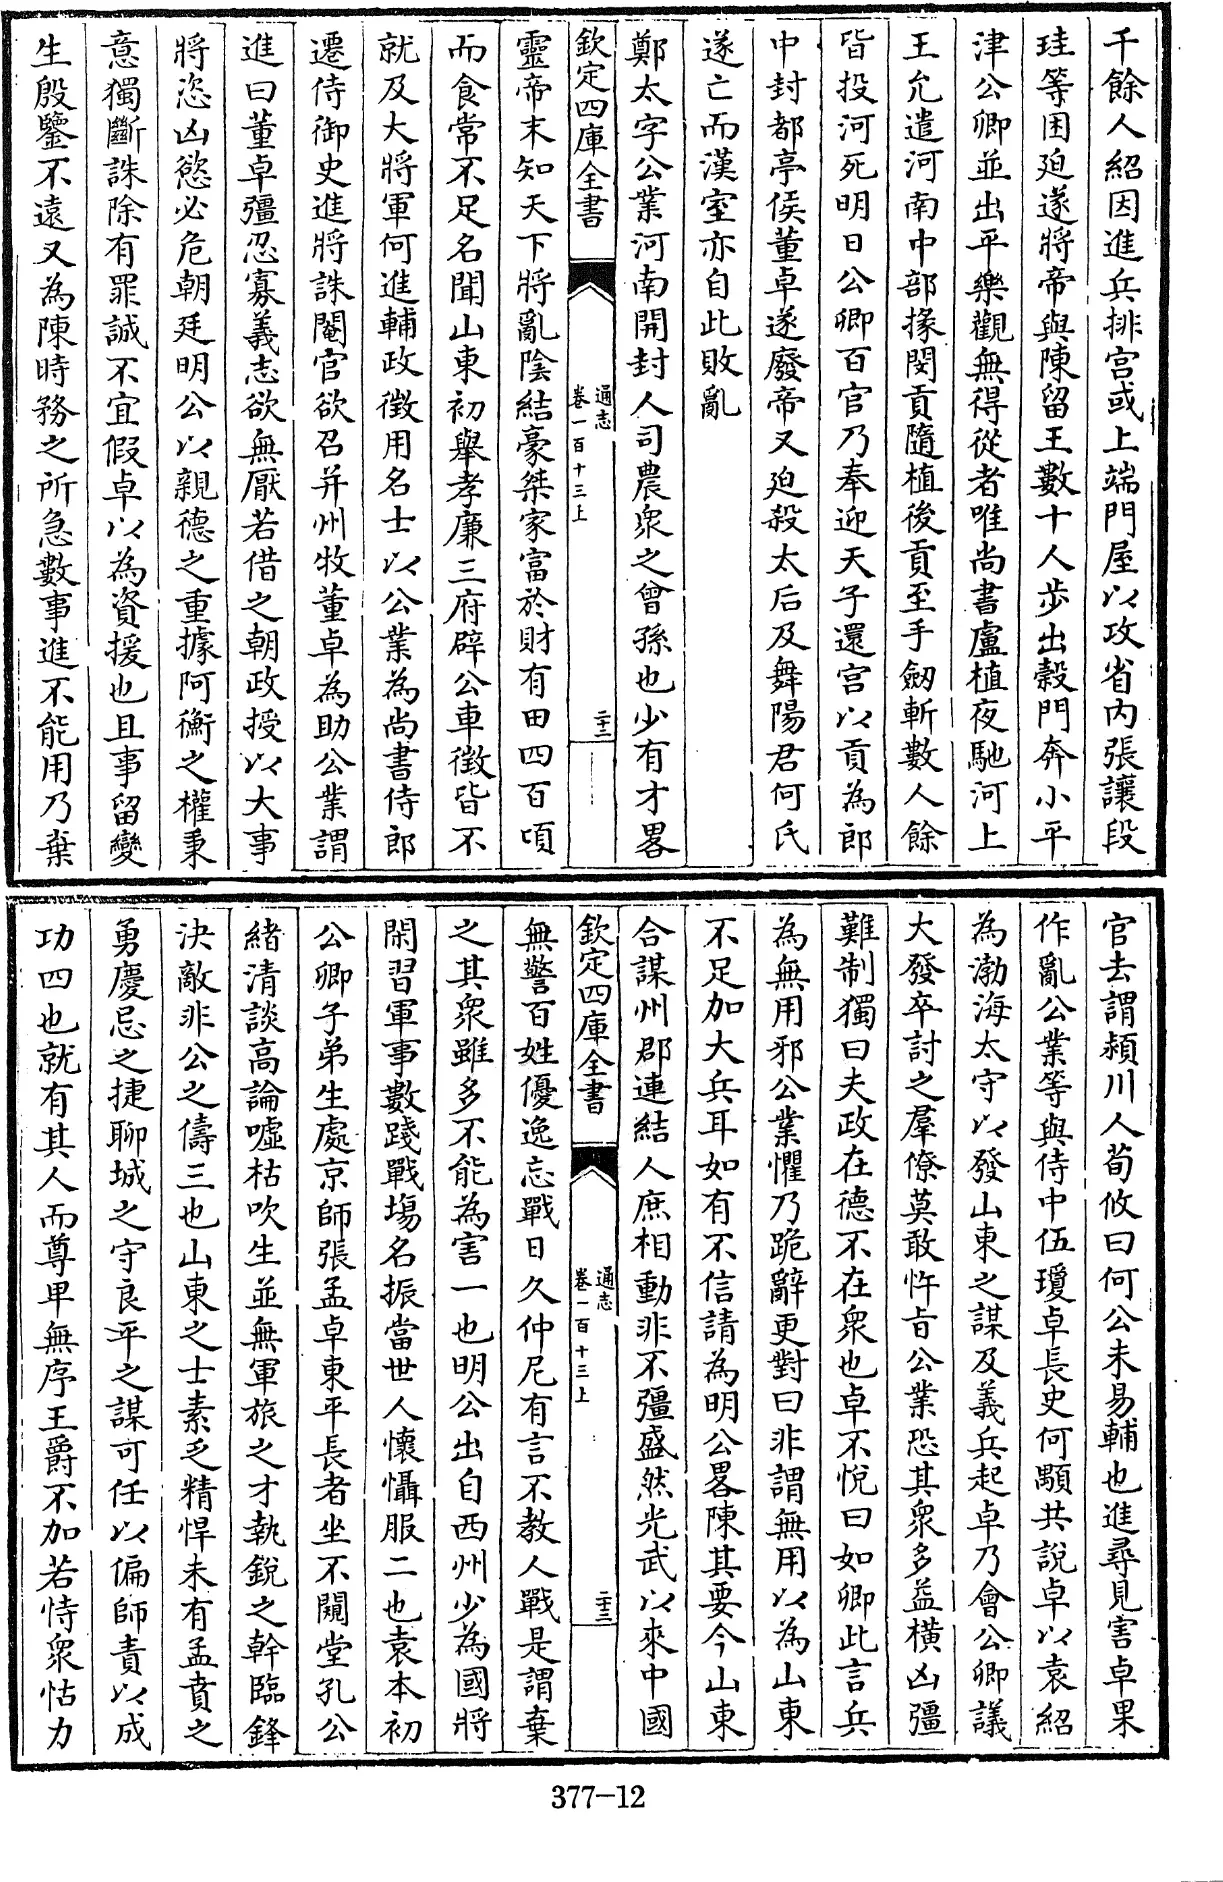 千餘人紹因進兵排宮或上端門屋以攻省内張讓段
珪等困迫遂將帝與陳留王數十人步出穀門奔小平
津公卿並出平樂觀無得從者唯尚書盧植夜馳河上
王允遣河南中部掾閔貢隨植後貢至手劔斬數人餘
皆投河死明日公卿百官乃奉迎天子還宮以貢為郎
中封都亭侯董卓遂廢帝又迫殺太后及舞陽君何氏
遂亡而漢室亦自此敗亂
鄭太字公業河南開封人司農衆之曾孫也少有才畧
欽定四庫全書
通志
卷一百十三上
二十三
靈帝末知天下將亂陰結豪桀家富於財有田四百頃
而食常不足名聞山東初舉孝廉三府辟公車徵皆不
就及大將軍何進輔政徵用名士以公業為尚書侍郎
遷侍御史進將誅閹官欲召并州牧董卓為助公業謂
進曰董卓彊忍寡義志欲無厭若借之朝政授以大事
將恣凶慾必危朝廷明公以親德之重據阿衡之權秉
意獨斷誅除有罪誠不宜假卓以為資援也且事留變
生殷鑒不遠又為陳時務之所急數事進不能用乃棄
官去謂潁川人荀攸曰何公未易輔也進尋見害卓果
作亂公業等與侍中伍瓊卓長史何顒共說卓以袁紹
為渤海太守以發山東之謀及義兵起卓乃會公卿議
大發卒討之羣僚莫敢忤旨公業恐其衆多益橫凶彊
難制獨曰夫政在德不在衆也卓不悅曰如卿此言兵
為無用邪公業懼乃跪辭更對曰非謂無用以為山東
不足加大兵耳如有不信請為明公畧陳其要今山東
合謀州郡連結人庶相動非不彊盛然光武以來中國
欽定四庫全書
通志
卷一百十三上
二十三
無警百姓優逸忘戰日久仲尼有言不教人戰是謂棄
之其衆雖多不能為害一也明公出自西州少為國將
閑習軍事數踐戰場名振當世人懷懾服二也袁本初
公卿子弟生處京師張孟卓東平長者坐不闚堂孔公
緒清談高論噓枯吹生並無軍旅之才執銳之幹臨鋒
決敵非公之儔三也山東之士素乏精悍未有孟賁之
勇慶忌之捷聊城之守良平之謀可任以偏師責以成
功四也就有其人而尊卑無序王爵不加若恃衆怙力
377-12